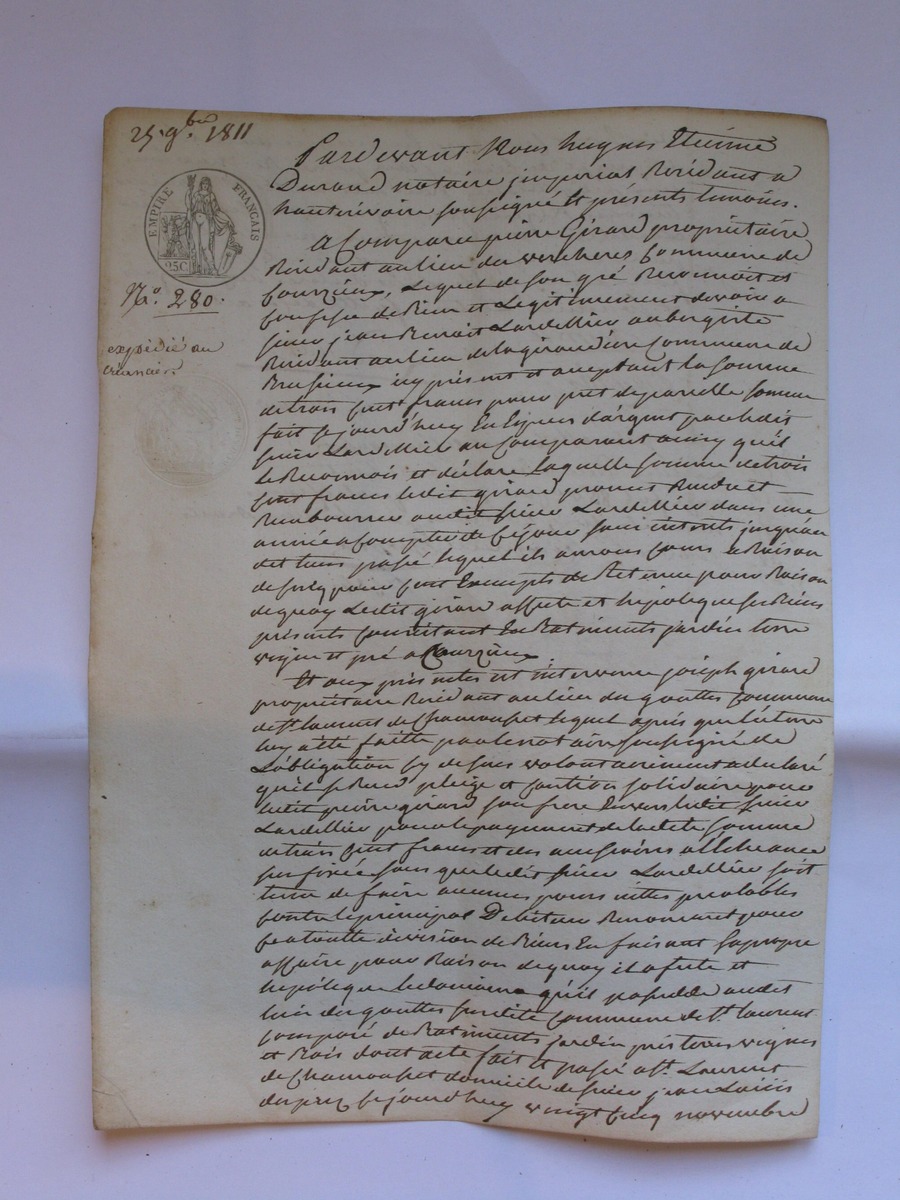 25 9bre 1811
EMPIRE FRANÇAIS
25C
No. 280.
expédié au
créancier.
Pardevant Nous hugues Etienne
Durand notaire imperial Residant a
hauterivoire soussigné Et présents temoins.
a Comparu pierre Girard proprietaire
Residant au lieu du vercheres Commune de
Courzieux, Lequel de son gré Reconnoit et
Confesse de Bien et Legitimement devoir a
sieur jean Benoit Lardellier aubergiste
Residant au lieu de la giraudiere Commune de
Brusieux icy présent et aceptant la somme
de trois cent francs pour pret de pareille somme
fait ce jourd'huy En Especes d'argent par ledit
sieur Lardellier au Comparant ainsy qu'il
le Reconnois et déclare Laquelle somme de trois
cent francs ledit girard promet Rendre et
Rembourser audit sieur Lardellier dans une
année a Compter de Cejour sans interets jusqu'au
dit tems passé lequel ils auront Cours a Raison
de cinq pour cent Exempts de Retenue pour Raison
de quoy Ledit girard affecte et hipoteque ses Biens
présents Consistant En Batiments jardin terre
vigne et pré a Courzieux.
Et aux présentes est intervenu joseph girard
proprietaire Residant au lieu des gouttes Commune
de St. laurent de Chamousset lequel après que lecture
luy a été faitte par le notaire soussigné de
L'obligation cy dessus volontairement a declaré
qu'il se Rend pleige et Caution solidaire pour
ledit pierre girard son frere Envers ledit sieur
Lardellier pour le payement de ladite somme
de trois Cent francs et des accessoires a l'Echeance
sus fixée sans que ledit sieur Lardellier soit
tenu de faire aucunes poursuittes prealables
Contre le principal Debiteur Renoncant pour
ce a toutte division de Biens En faisant sa propre
affaire pour Raison de quoy il afecte et
hipoteque le domaine qu'il possedde audit
lieu des gouttes susdite Commune de St. laurent
Composé de Batiments jardin prés terres vignes
et Bois dont acte fait et passé a St. Laurent
de Chamousset domicile de sieur jean Louis
ce jourd'huy vingt Cinq novembre